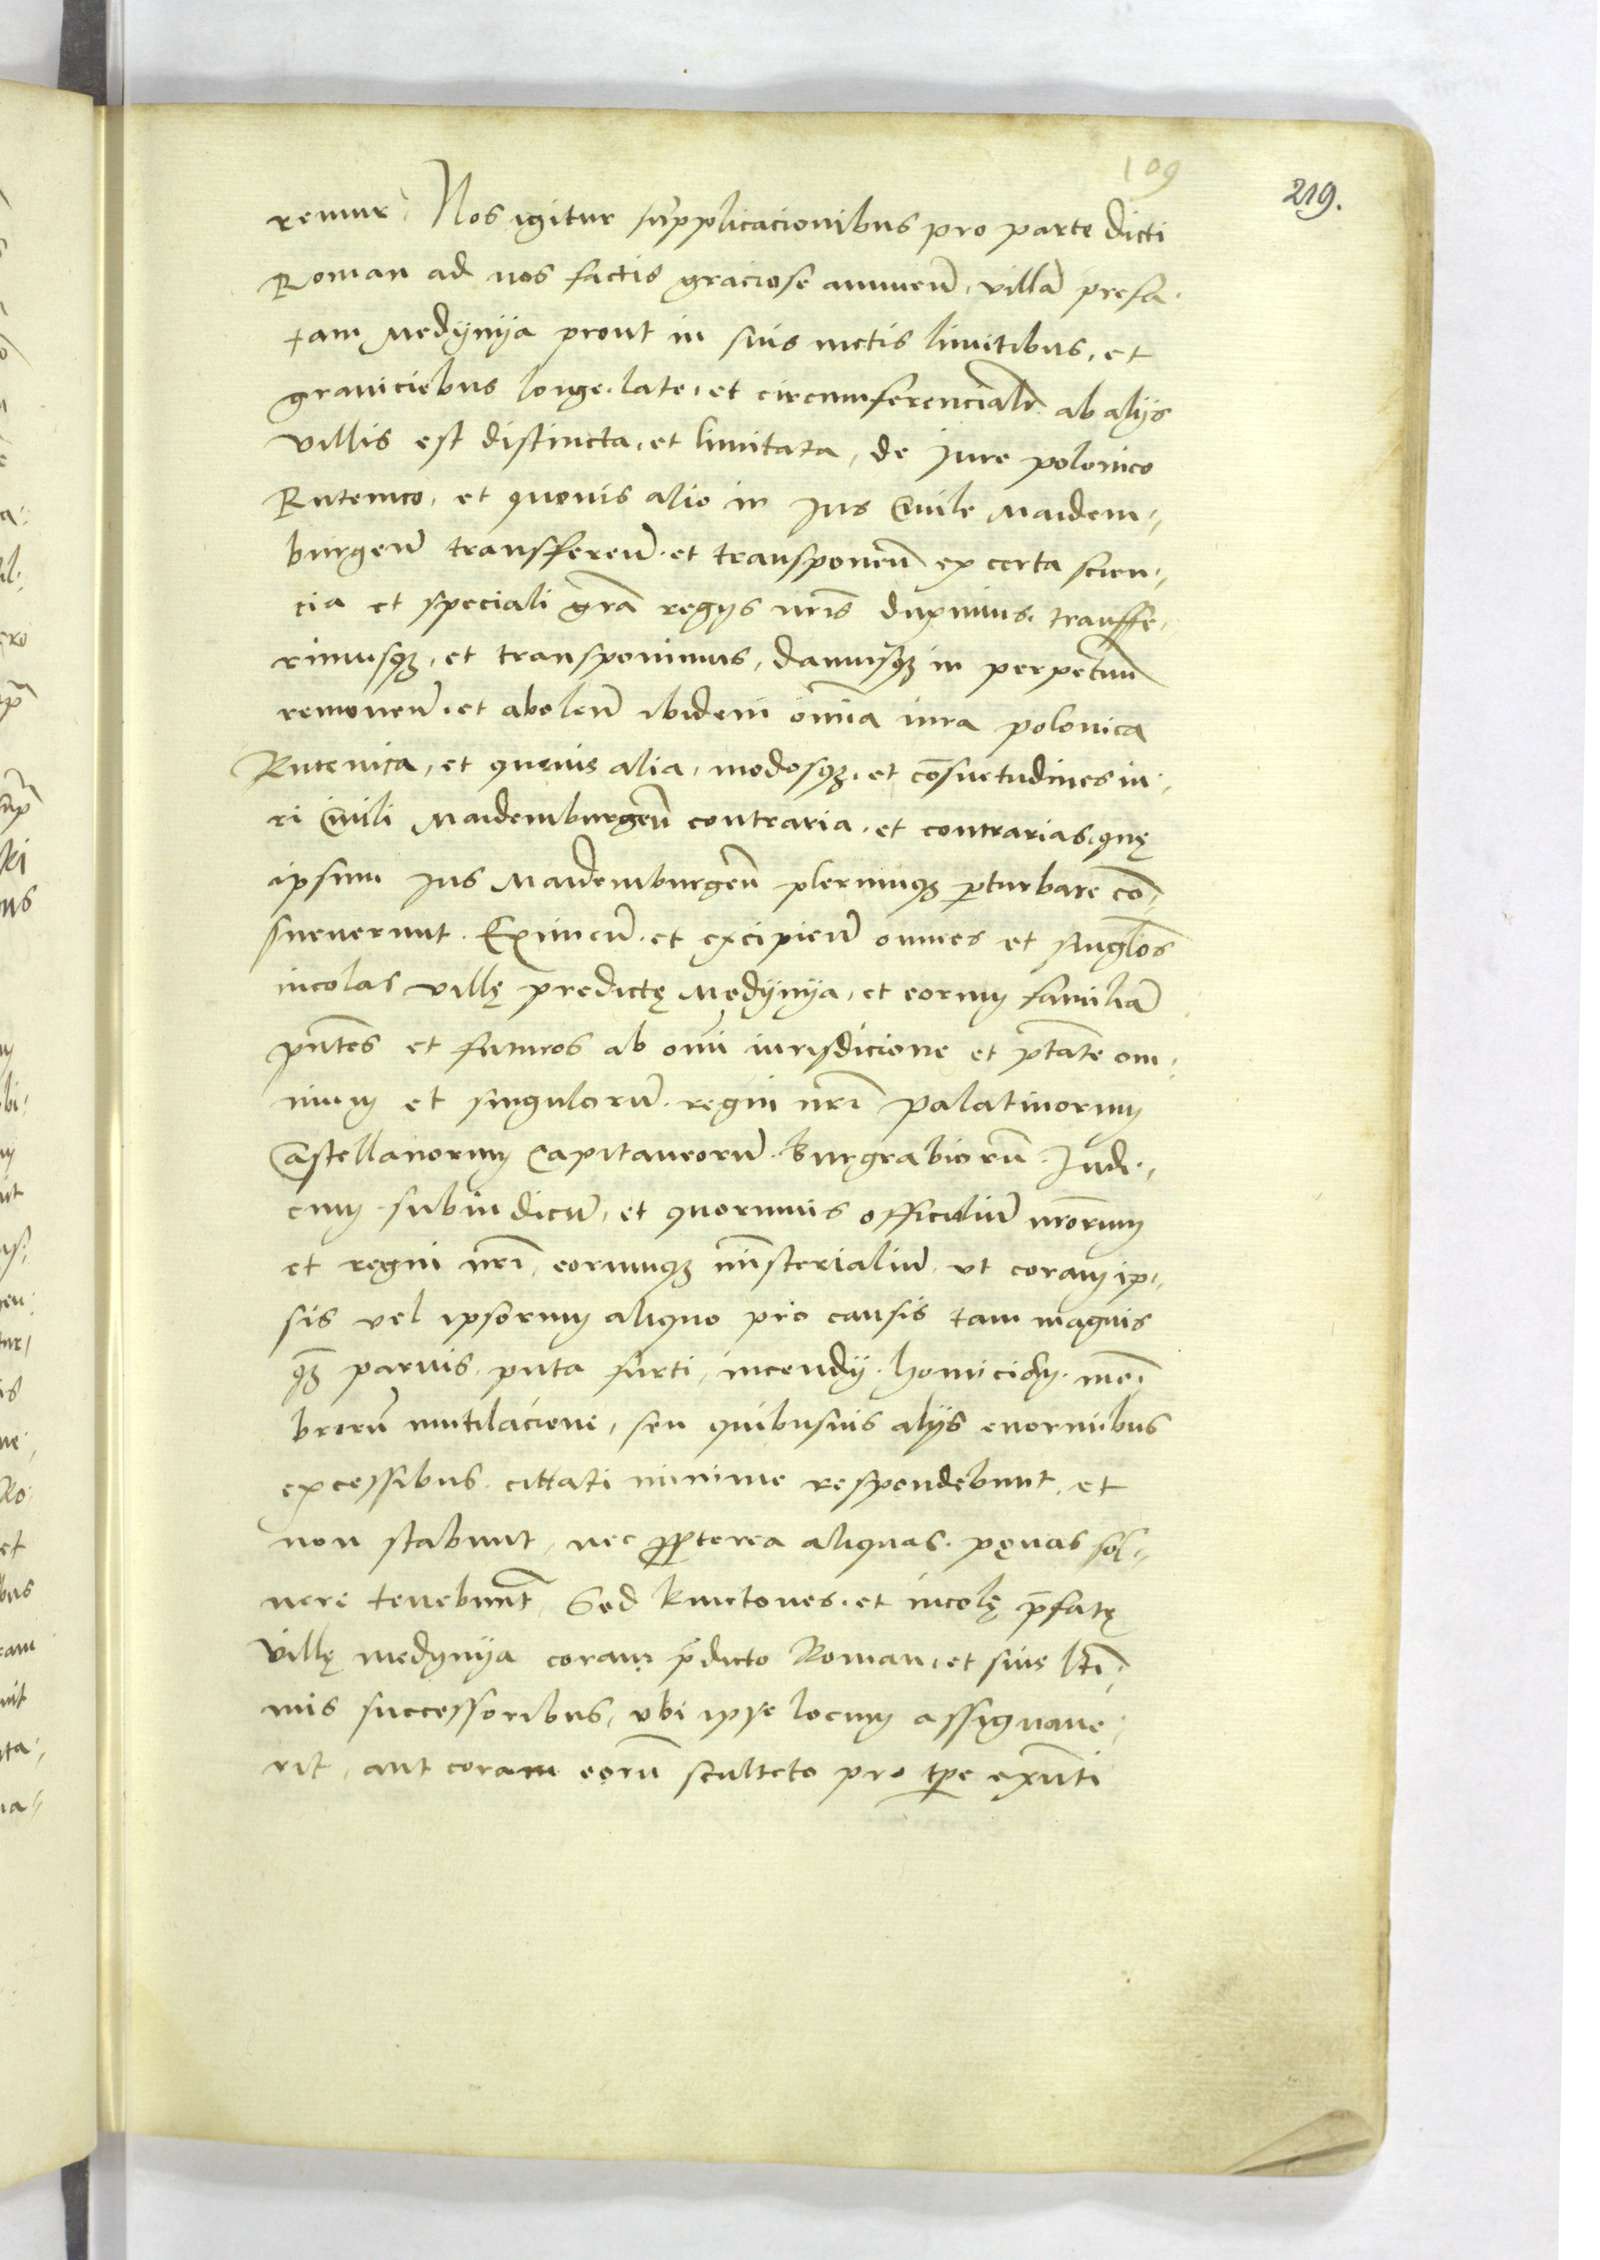 109
219.
remur. Nos igitur supplicacionibus pro parte dicti
Roman ad nos factis graciose annueñ. villã prefa-
tam Medÿnÿa prout in suis metis limitibus, et
graniciebus longe. late. et circumferencialr. ab alijs
villis est distincta, et limitata, de Jure polonico
Rutenico, et quovis alio in Jus Civile Maidem-
burgeñ transffereñ. et transponeñ ex certa scien-
cia et speciali gřa regijs nřis duximus. transffe-
rimusqȝ, et transponimus, damusqȝ in perpetuũ
removeñ. et aboleñ ibidem om̃ia iura polonica
Rutenica, et quevis alia, modosqȝ. et cõsuetudines iu-
ri Civili Maidemburgeñ contraria. et contrarias. quę
ipsum Jus Maidemburgeñ plerumqȝ p̲turbare cõ-
sueverunt. Eximeñ. et excipieñ omnes et singlõs
incolas villę predictę Medÿnÿa, et eorum familiã
pñtes et futuros ab om̃i iurisdicione et ptãte om-
nium et singulorũ. regni nřĩ palatinorum
Castellanorum Capitaneorũ. burgrabiorũ. Judi-
cum subiudicũ, et quorumvis officialiũ nřõrum
et regni nřĩ, eorumqȝ miñsterialiũ. ut coram ip-
sis vel ipsorum aliquo pro causis tam magnis
qȝ̃ parvis. puta furti, incendij. homicidij. mẽ-
brorũ mutilacione, seu quibusvis alijs enormibus
excessibus. cittati minime respondebunt. et
non stabunt, nec p̲p̲terea aliquas. pęnas sol-
vere tenebunt̃. Sed kmetones. et incolę p̃fatę
villę Medynÿa coram p̃dicto Roman. et suis ltĩ-
mis successoribus, ubi ipse locum assignave-
rit, aut coram eorũ sculteto pro tp̃e exñti